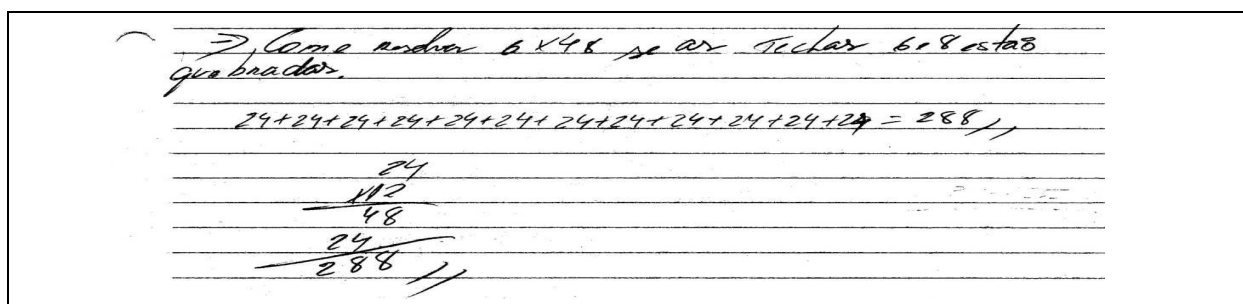 ⇒ Como resolver 6 x 48 se as teclas 6 e 8 estão
quebradas.
24+24+24+24+24+24+24+24+24+24+24+24 = 288
24
x12
48
24
288